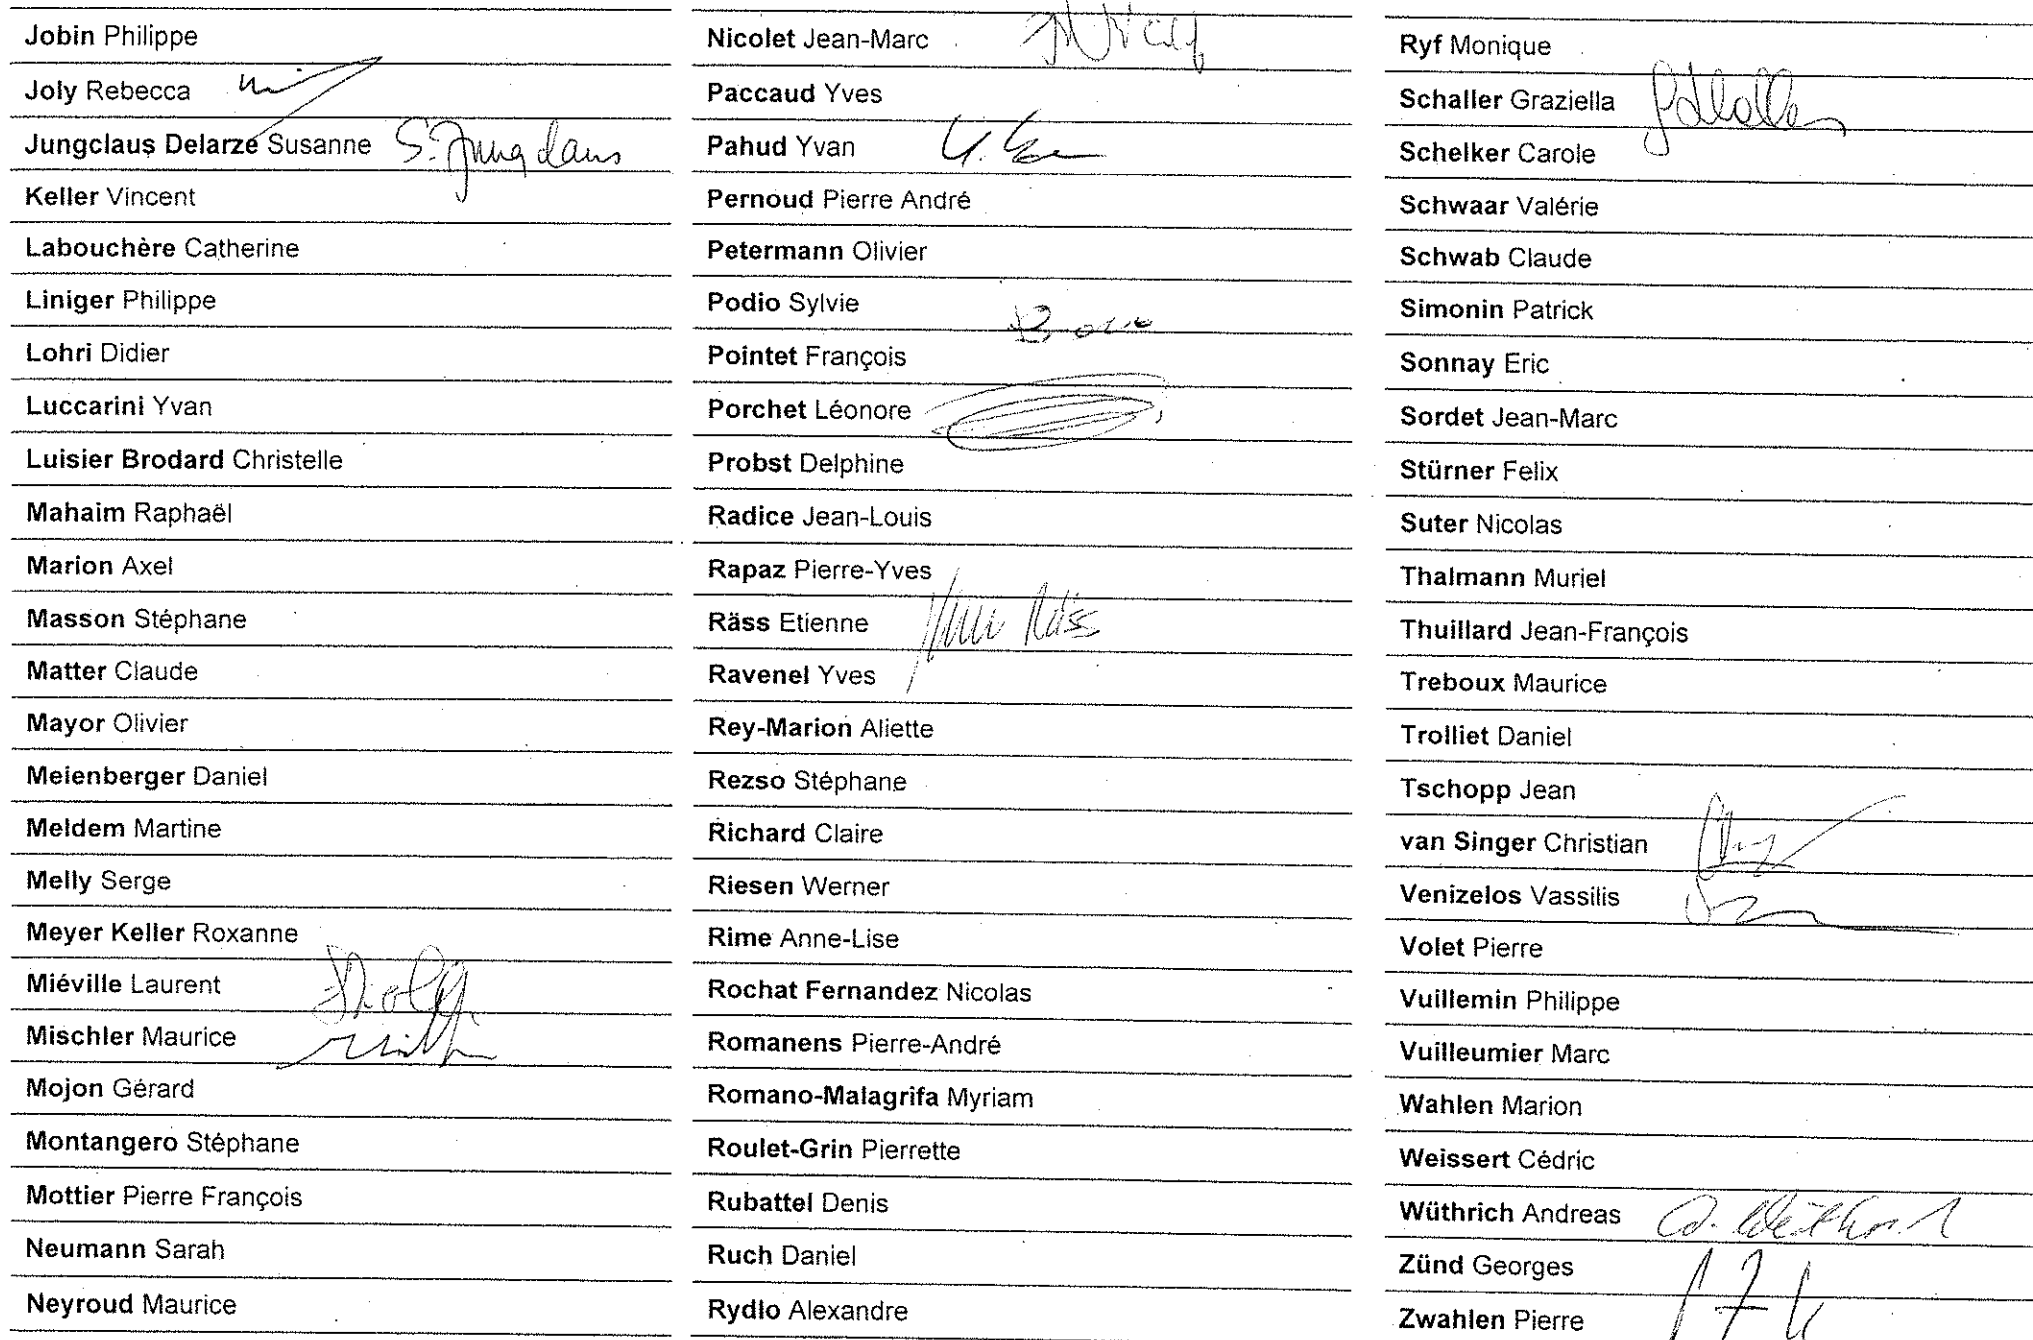 Jobin Philippe
Joly Rebecca
Jungclaus Delarze Susanne S. Jungclaus
Keller Vincent
Labouchère Catherine
Liniger Philippe
Lohri Didier
Luccarini Yvan
Luisier Brodard Christelle
Mahaim Raphaël
Marion Axel
Masson Stéphane
Matter Claude
Mayor Olivier
Meienberger Daniel
Meldem Martine
Melly Serge
Meyer Keller Roxanne
Miéville Laurent
Mischler Maurice
Mojon Gérard
Montangero Stéphane
Mottier Pierre François
Neumann Sarah
Neyroud Maurice
Nicolet Jean-Marc
Paccaud Yves
Pahud Yvan
Pernoud Pierre André
Petermann Olivier
Podio Sylvie
Pointet François
Porchet Léonore
Probst Delphine
Radice Jean-Louis
Rapaz Pierre-Yves
Räss Etienne Räss
Ravenel Yves
Rey-Marion Aliette
Rezso Stéphane
Richard Claire
Riesen Werner
Rime Anne-Lise
Rochat Fernandez Nicolas
Romanens Pierre-André
Romano-Malagrifa Myriam
Roulet-Grin Pierrette
Rubattel Denis
Ruch Daniel
Rydlo Alexandre
Ryf Monique
Schaller Graziella
Schelker Carole
Schwaar Valérie
Schwab Claude
Simonin Patrick
Sonnay Eric
Sordet Jean-Marc
Stürner Felix
Suter Nicolas
Thalmann Muriel
Thuillard Jean-François
Treboux Maurice
Trolliet Daniel
Tschopp Jean
van Singer Christian
Venizelos Vassilis
Volet Pierre
Vuillemin Philippe
Vuilleumier Marc
Wahlen Marion
Weissert Cédric
Wüthrich Andreas
Zünd Georges
Zwahlen Pierre